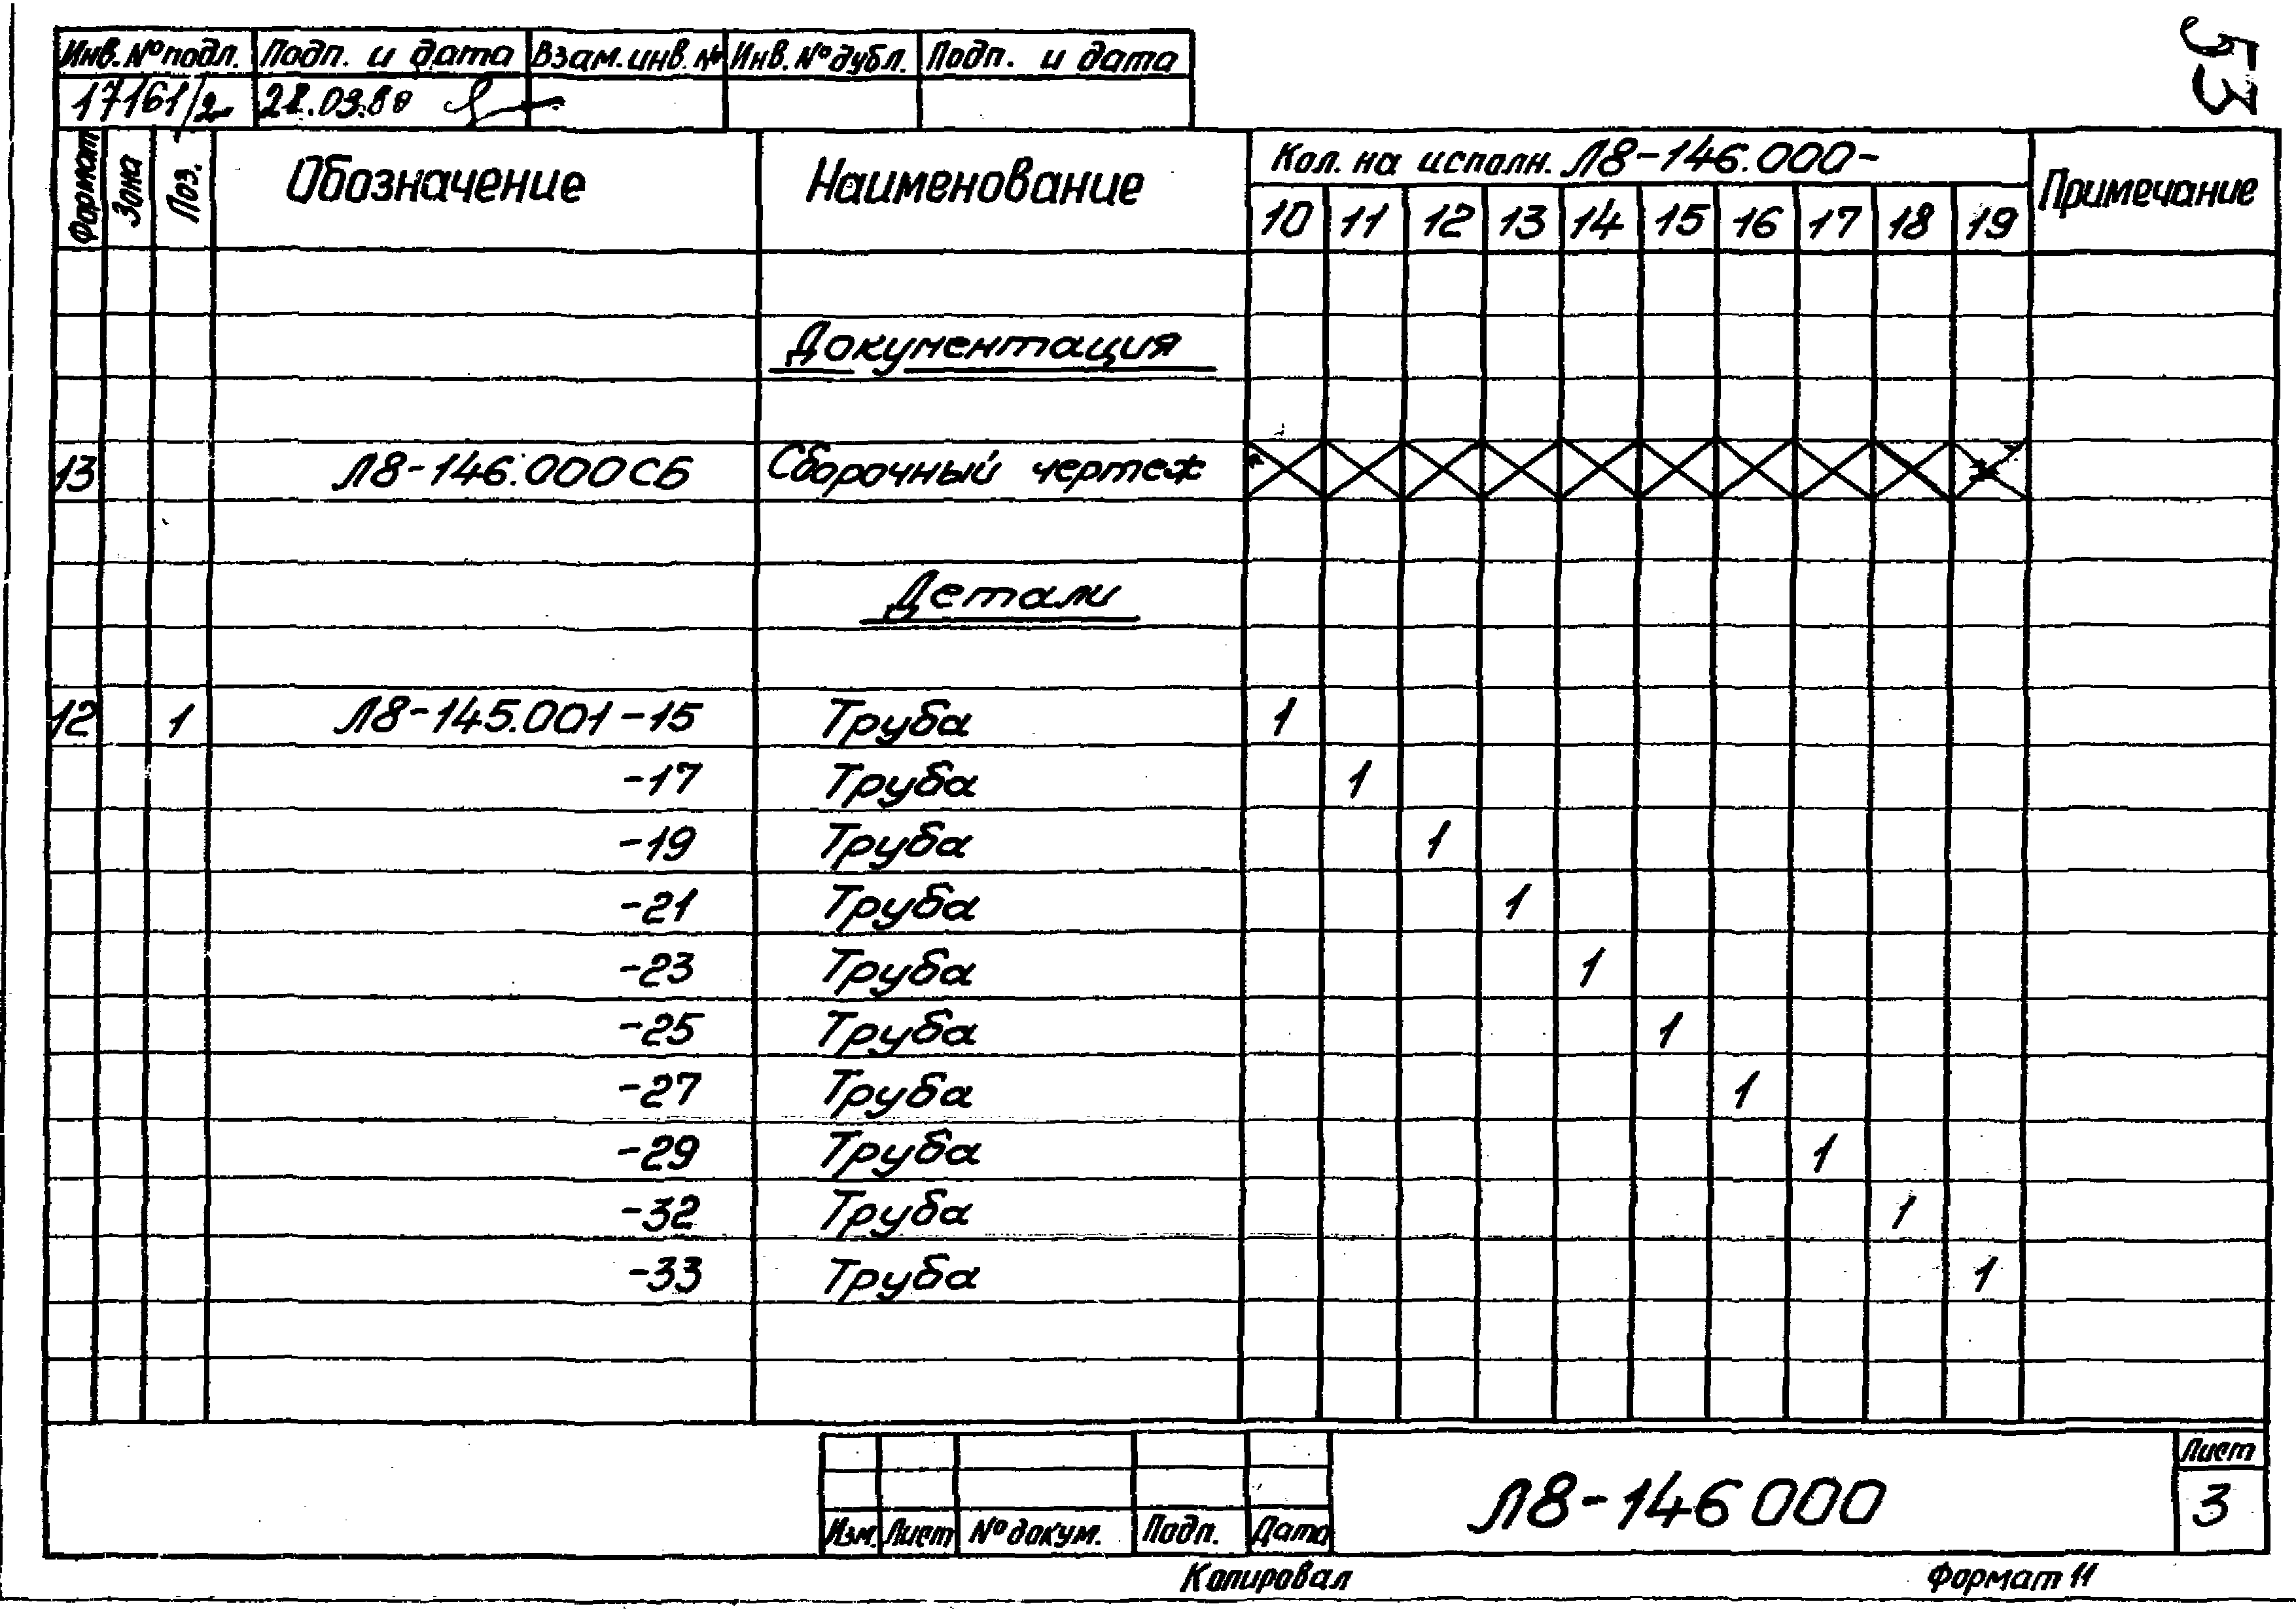 53
Инв. № подл. Подп. и дата Взам. инв. № Инв. № дубл. Подп. и дата
17161/2 28.03.80
Формат Зона Поз. Обозначение Наименование Кол. на исполн. Л8-146.000- Примечание
10 11 12 13 14 15 16 17 18 19
Документация
13 Л8-146.000СБ Сборочный чертеж
Детали
12 1 Л8-145.001-15 Труба 1
-17 Труба 1
-19 Труба 1
-21 Труба 1
-23 Труба 1
-25 Труба 1
-27 Труба 1
-29 Труба 1
-32 Труба 1
-33 Труба 1
Изм. Лист № докум. Подп. Дата
Л8-146 000
Лист
3
Копировал Формат 11